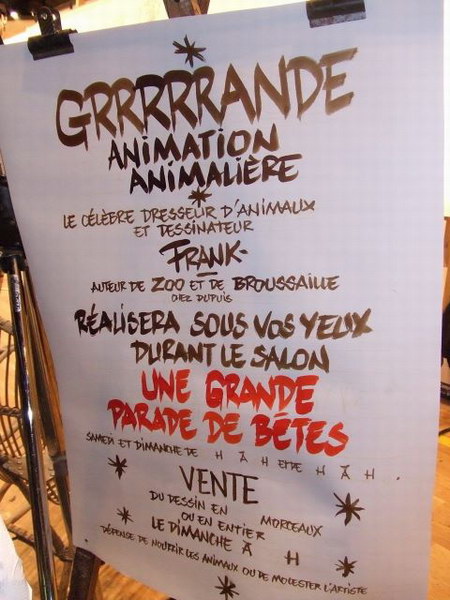 GRRRRRANDE
ANIMATION
ANIMALIÈRE
LE CÉLÈBRE DRESSEUR D'ANIMAUX
ET DESSINATEUR
FRANK-
AUTEUR DE ZOO ET DE BROUSSAILLE
CHEZ DUPUIS
RÉALISERA SOUS VOS YEUX
DURANT LE SALON
UNE GRANDE
PARADE DE BÊTES
SAMEDI ET DIMANCHE DE H À H ET DE H À H.
VENTE
DU DESSIN EN MORCEAUX
OU EN ENTIER
LE DIMANCHE À H
DÉFENSE DE NOURRIR LES ANIMAUX OU DE MOLESTER L'ARTISTE